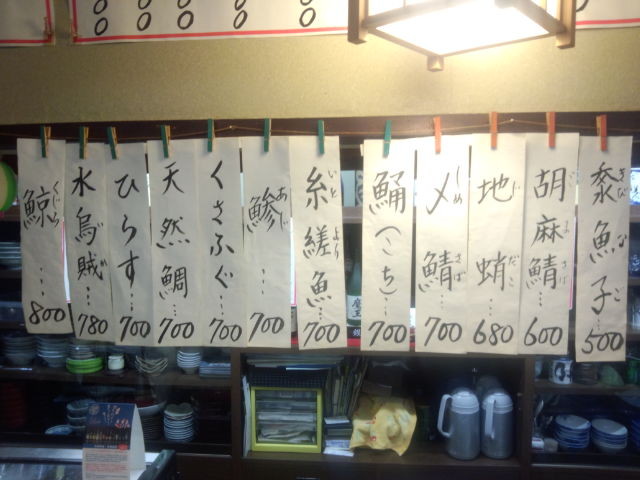 黍魚子…500
きびなご
胡麻鯖…600
ごまさば
地蛸…680
じだこ
〆鯖…700
しめさば
鯒(こち)…700
糸縒魚…700
いとより
鯵…700
あじ
くさふぐ…700
天然鯛…700
ひらす…700
水烏賊…780
鯨…800
くじら